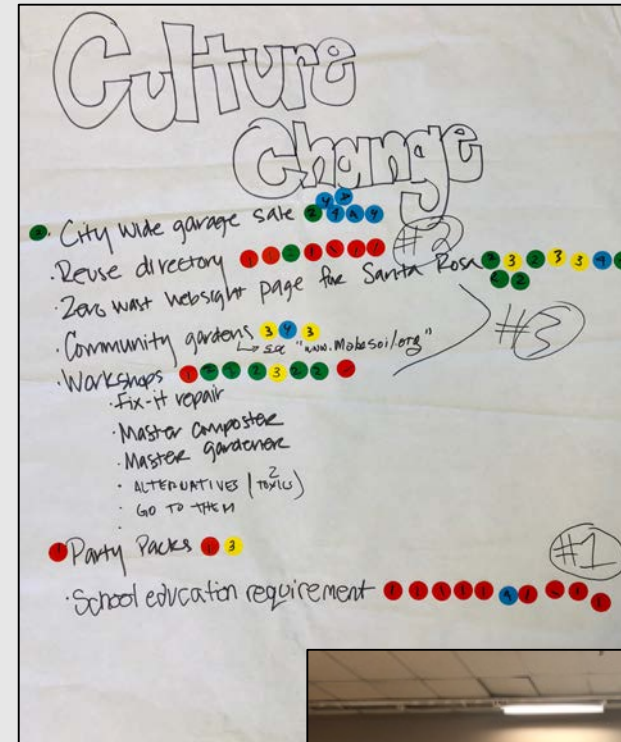 Culture
Change
City wide garage sale 2 4 4 4
Reuse directory 1 1 2 1 1 1 1 #2
Zero wast websight page for Santa Rosa 2 3 2 3 3 4
2 2
Community gardens 3 4 3
"www.makesoil/org"
#3
Workshops 1 2 2 2 3 2 2 1
Fix-it repair
Master composter
Master gardener
ALTERNATIVES (TOXICS)
2
GO TO THEM
1 Party Packs 1 3
#1
School education requirement 1 1 1 1 1 4 1 1 1 1